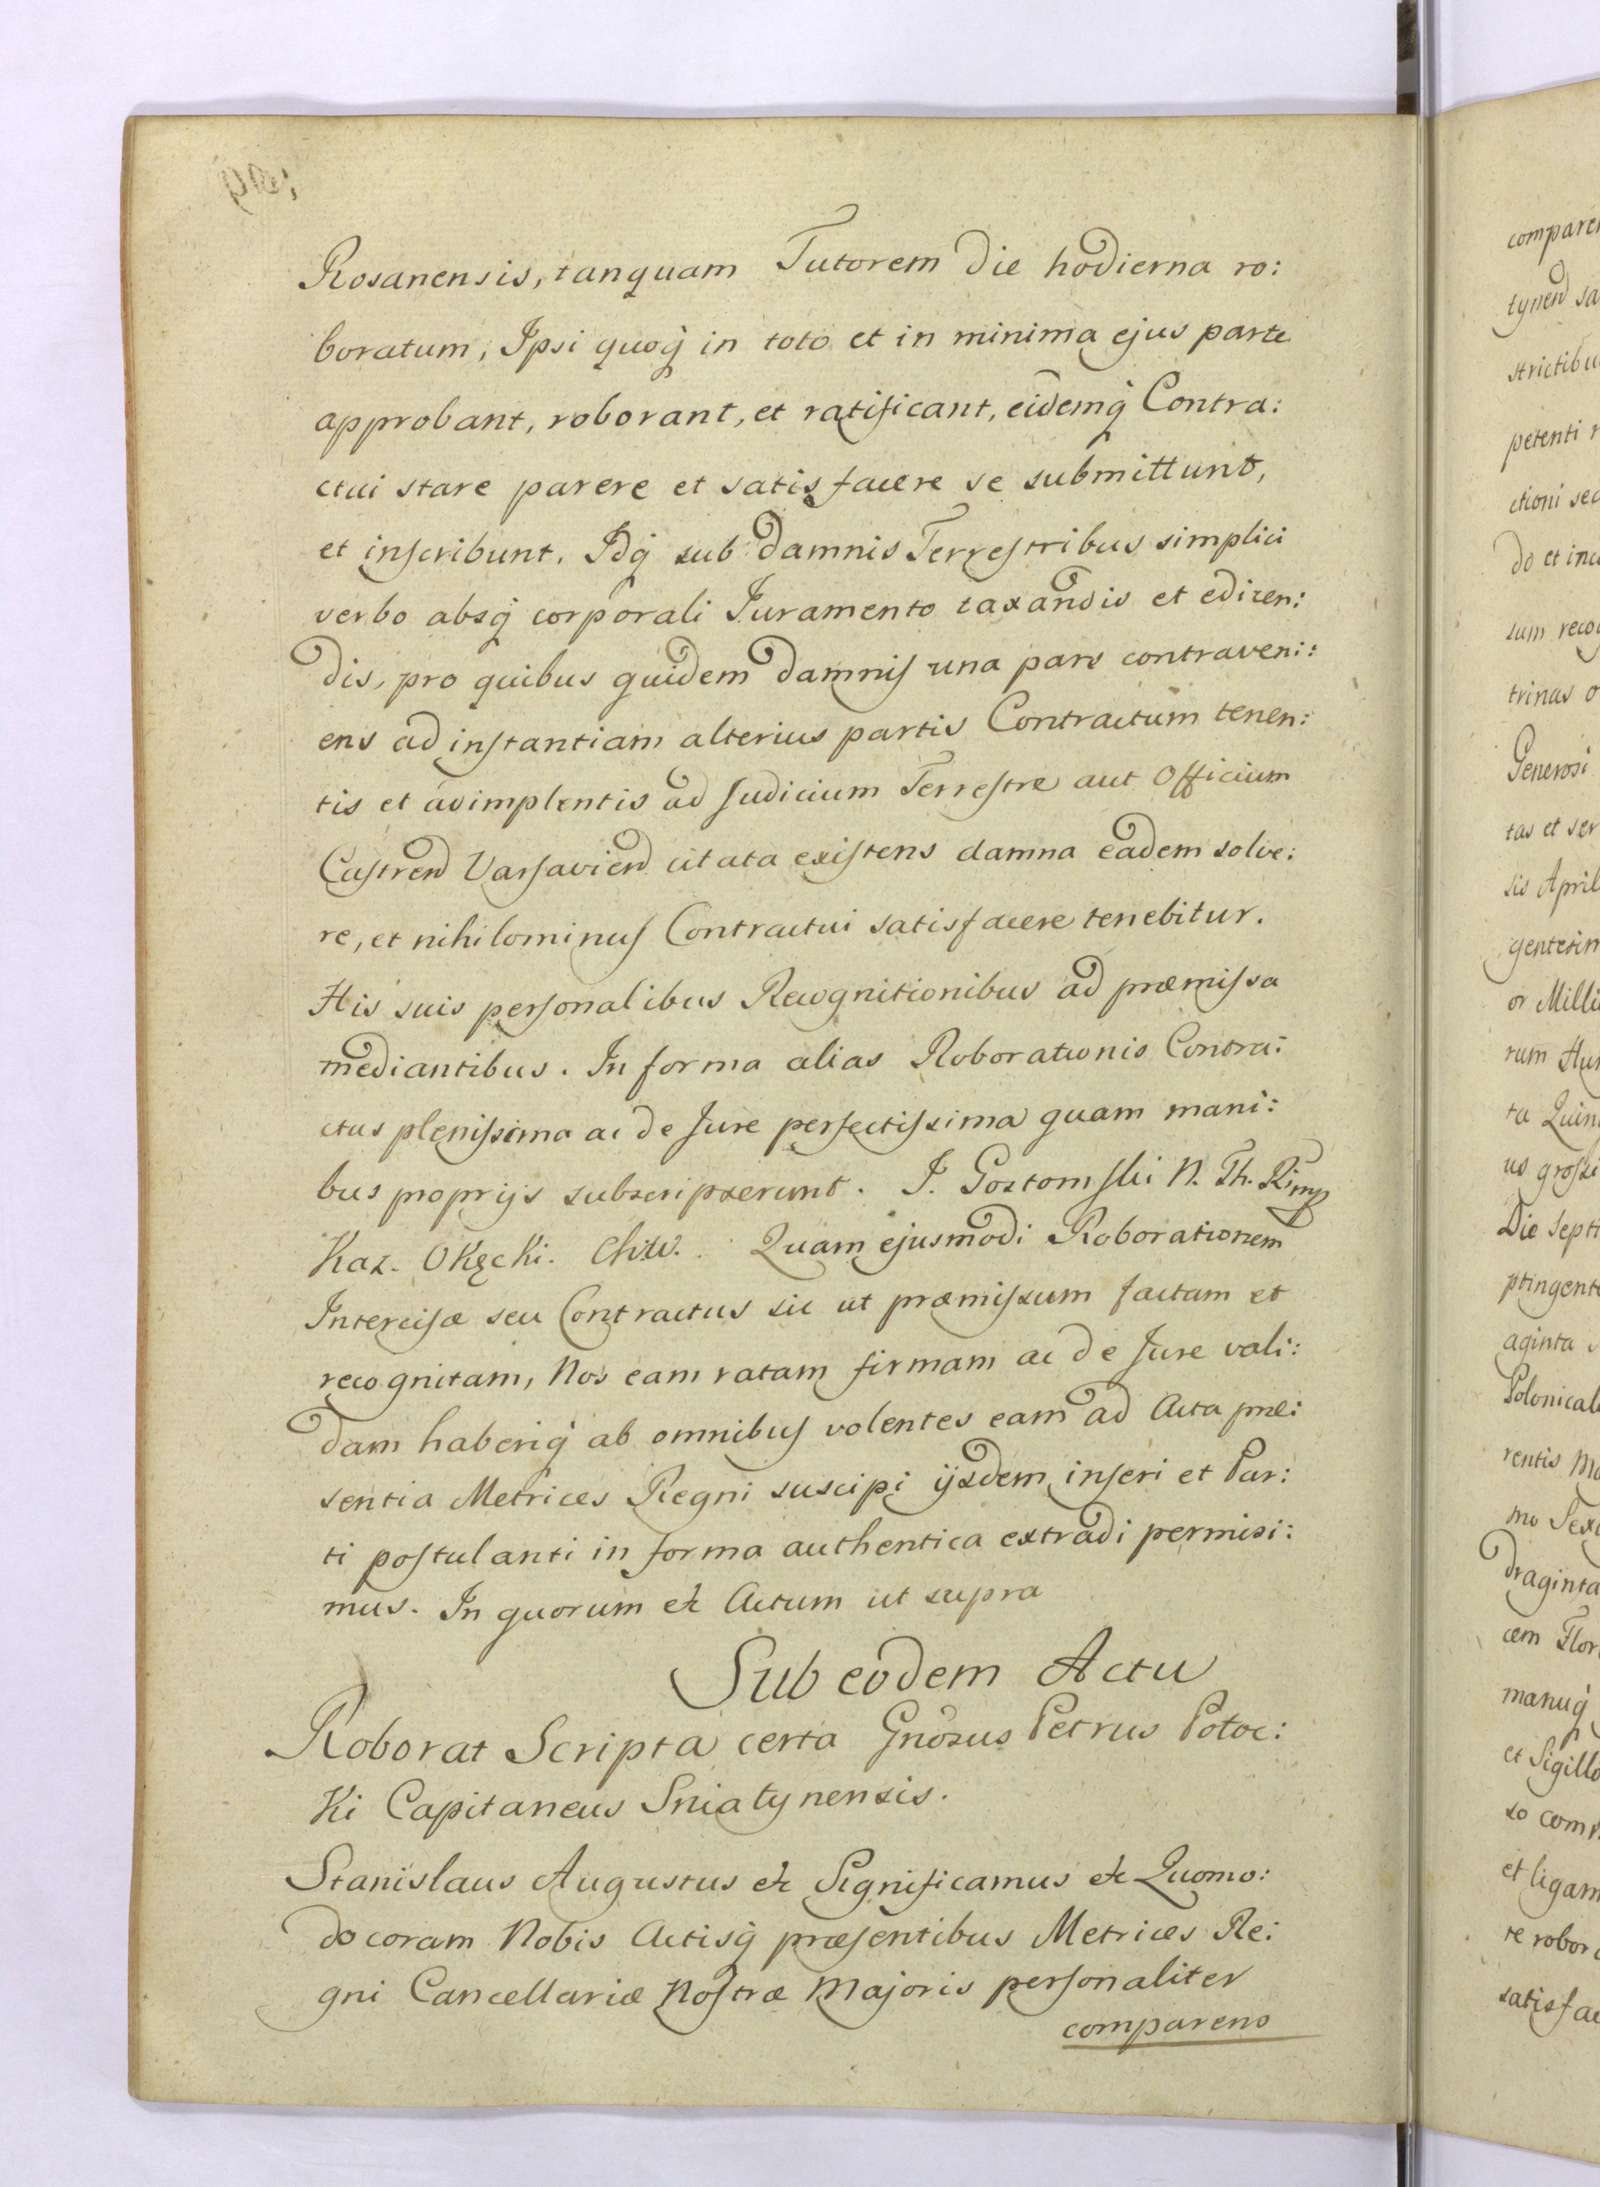 Rosanensis, tanquam Tutorem die hodierna ro:
boratum, Ipsi quoq̃ in toto et in minima ejus parte
approbant, roborant, et ratificant, eidemq̃ Contra:
ctui stare parere et satisfacere se submittunt,
et inscribunt. Idq̃ sub damnis Terrestribus simplici
verbo absq̃ corporali Juramento taxandis et edicen:
dis, pro quibus quidem damnis una pars contraveni:
ens ad instantiam alterius partis Contractum tenen:
tis et adimplentis ad Judicium Terrestre aut Officium
Castren Varsavien citata existens damna eadem solve:
re, et nihilominus Contractui satisfacere tenebitur.
His suis personalibus Recognitionibus ad præmissa
mediantibus. In forma alias Roborationis Contra:
ctus plenissima ac de Jure perfectissima quam mani:
bus proprijs subscripserunt. J. Gostomski N. Th.
Kaz. Okęcki. Quam ejusmodi Roborationem
Intercisæ seu Contractus sic ut præmissum factam et
recognitam, Nos eam ratam firmam ac de Jure vali:
dam haberiq̃ ab omnibus volentes eam ad Acta præ:
sentia Metrices Regni suscipi ijsdem inseri et Par:
ti postulanti in forma authentica extradi permisi:
mus. In quorum etc Actum ut supra
Sub eodem Actu
Roborat Scripta certa Gnosus Petrus Potoc:
Ki Capitaneus Sniatynensis.
Stanislaus Augustus etc Significamus etc Quomo:
do coram Nobis Actisq̃ præsentibus Metrices Re:
gni Cancellariæ Nostræ Majoris personaliter
comparens